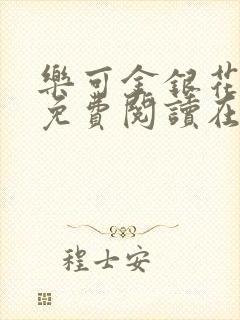 樂可金銀花
免費閱讀在
程士安